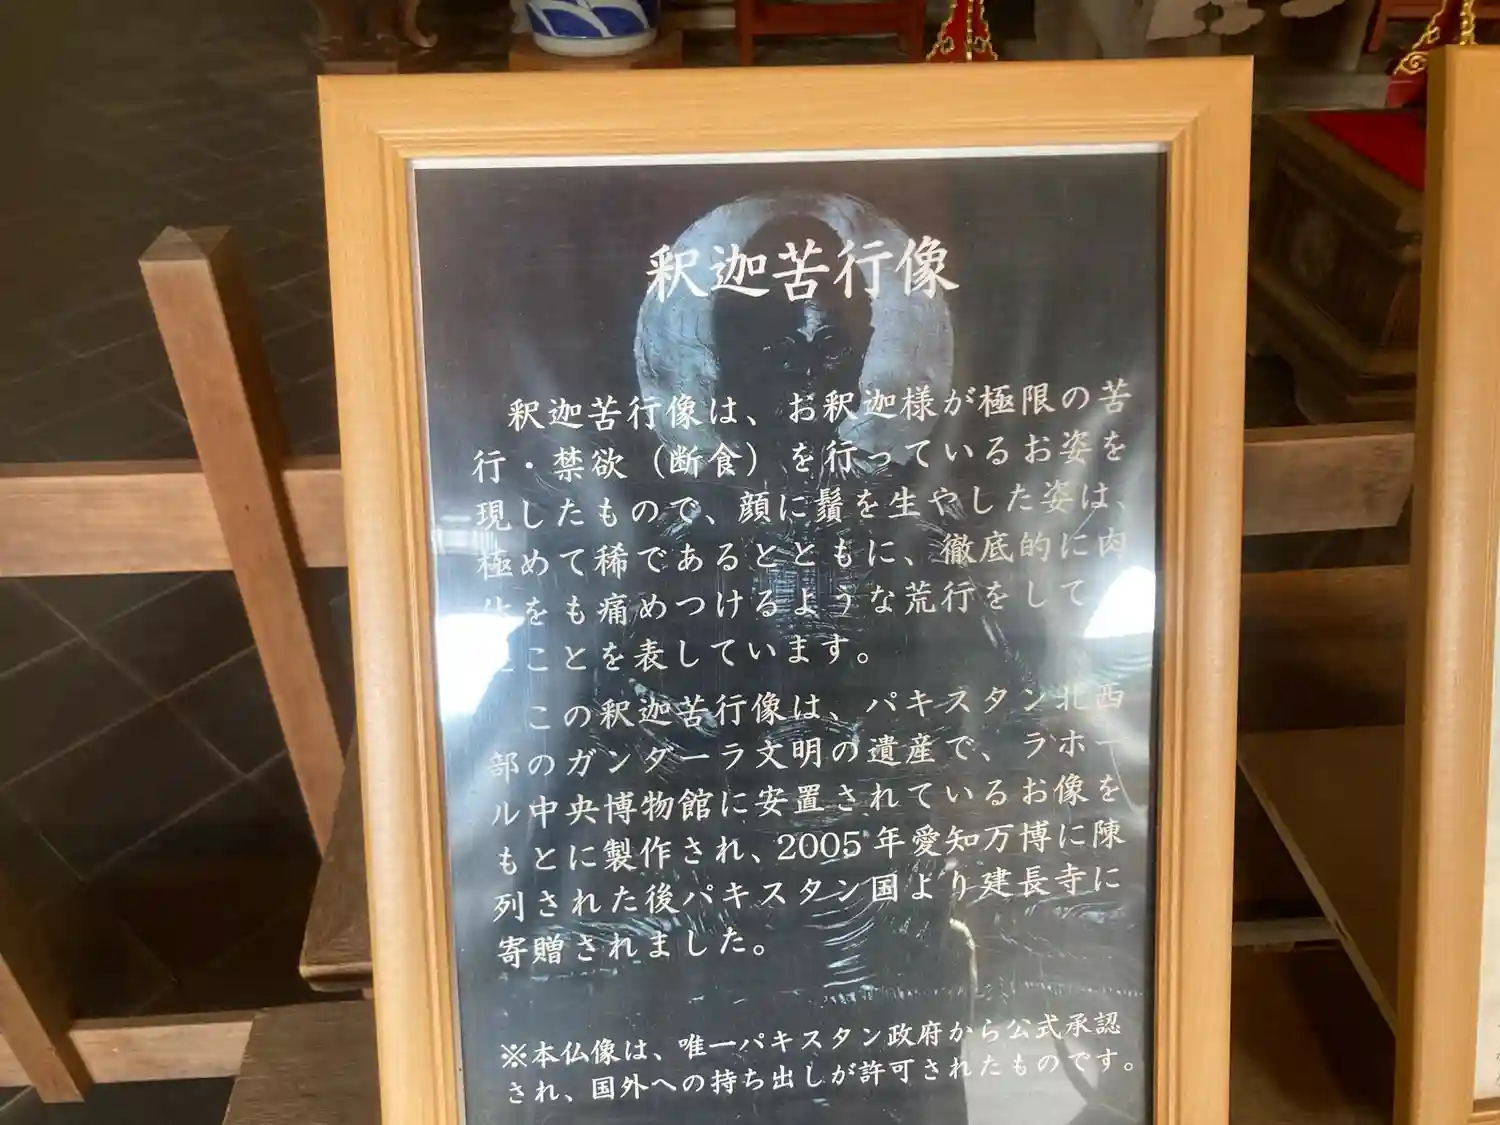 釈迦苦行像
釈迦苦行像は、お釈迦様が極限の苦
行・禁欲（断食）を行っているお姿を
現したもので、顔に鬚を生やした姿は、
極めて稀であるとともに、徹底的に肉
をも痛めつけるような荒行をして
ことを表しています。
この釈迦苦行像は、パキスタン北西
部のガンダーラ文明の遺産で、ラホー
ル中央博物館に安置されているお像を
もとに製作され、2005年愛知万博に陳
列された後パキスタン国より建長寺に
寄贈されました。
※本仏像は、唯一パキスタン政府から公式承認
され、国外への持ち出しが許可されたものです。